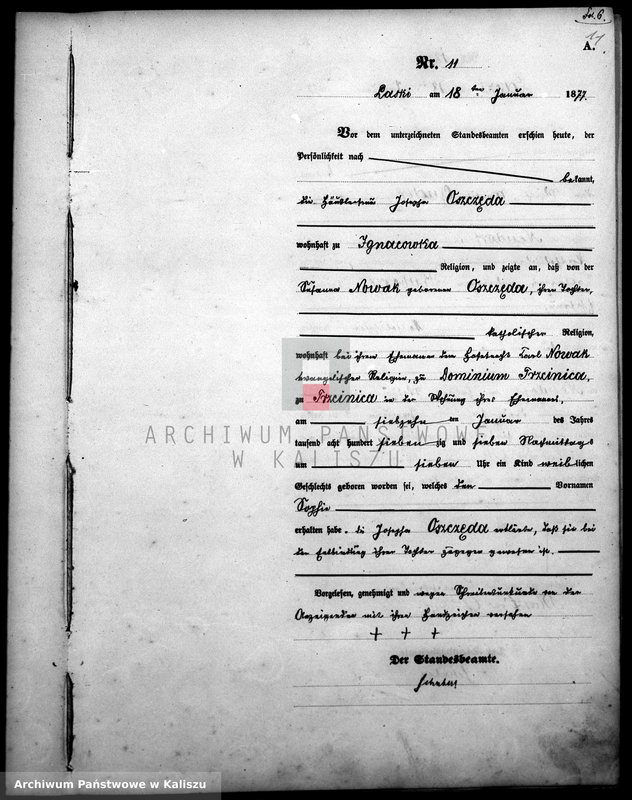 Fol. 6.
11
A.
Nr. 11
Laski am 18ten Januar 1877.
Vor dem unterzeichneten Standesbeamten erschien heute, der
Persönlichkeit nach
bekannt,
die Häuslerfrau Josepha Oszczęda
wohnhaft zu Ignacowka
Religion, und zeigte an, daß von der
Susanna Nowak geborenen Oszczęda, ihrer Tochter,
katholischer Religion,
wohnhaft bei ihrem Ehemanne dem Hofeknecht Carl Nowak
evangelischer Religion, zu Dominium Trzcinica,
zu Trzcinica in der Wohnung ihres Ehemannes,
am siebzehnten Januar des Jahres
tausend acht hundert siebenzig und sieben Nachmittags
um sieben Uhr ein Kind weiblichen
Geschlechts geboren worden sei, welches den Vornamen
Sophie
erhalten habe. die Josepha Oszczęda erklärte, daß sie bei
der Entbindung ihrer Tochter zugegen gewesen ist.
Vorgelesen, genehmigt und wegen Schreibunkunde von der
Anzeigenden mit ihrem Handzeichen versehen
+ + +
Der Standesbeamte.
ARCHIWUM PAŃSTWOWE
W KALISZU
Archiwum Państwowe w Kaliszu